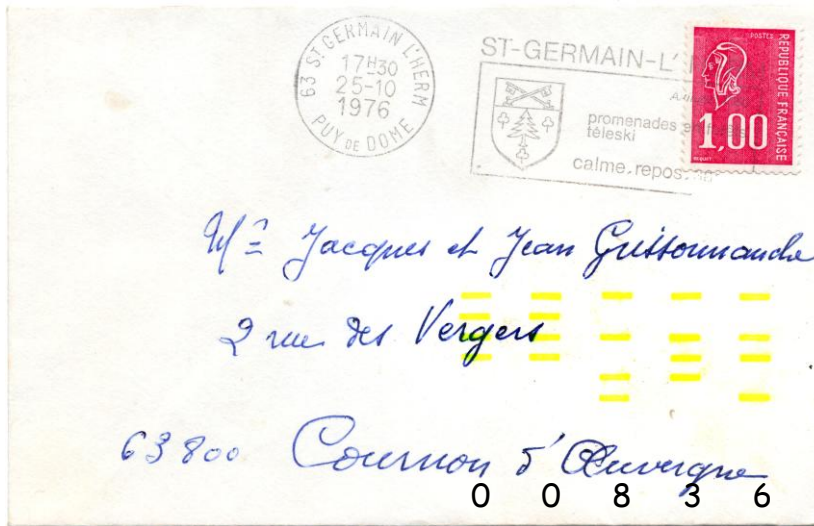 63 ST GERMAIN L'HERM
17H30
25-10
1976
PUY DE DOME
ST-GERMAIN-L'
promenades en
téleski
calme.repos.
POSTES
REPUBLIQUE FRANÇAISE
1,00
BEQUET
Mrs Jacques et Jean Grissonnanche
2 rue des Vergers
63800 Cournon d'Auvergne
0 0 8 3 6